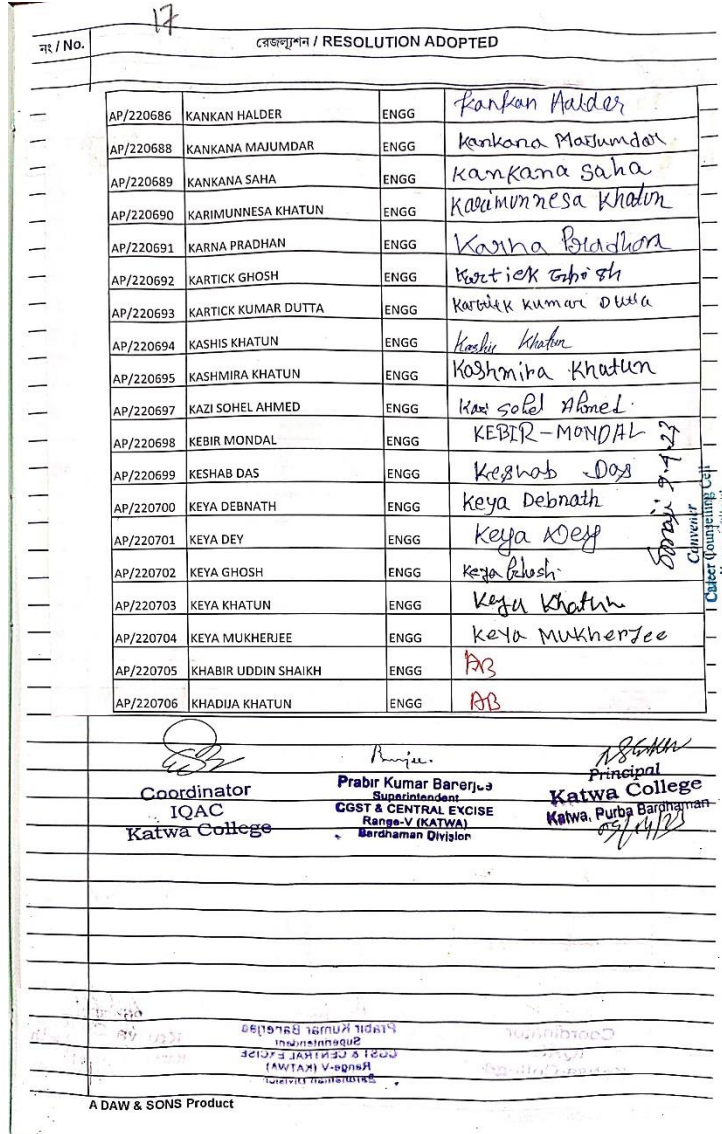 17
নং / No. রেজল্যুশন / RESOLUTION ADOPTED
AP/220686 KANKAN HALDER ENGG Kankan Halder
AP/220688 KANKANA MAJUMDAR ENGG Kankana Majumdar
AP/220689 KANKANA SAHA ENGG Kankana Saha
AP/220690 KARIMUNNESA KHATUN ENGG Karimunnesa Khatun
AP/220691 KARNA PRADHAN ENGG Karna Pradhan
AP/220692 KARTICK GHOSH ENGG Kartick Ghosh
AP/220693 KARTICK KUMAR DUTTA ENGG Kartick Kumar Dutta
AP/220694 KASHIS KHATUN ENGG Kashis Khatun
AP/220695 KASHMIRA KHATUN ENGG Kashmira Khatun
AP/220697 KAZI SOHEL AHMED ENGG Kazi Sohel Ahmed.
AP/220698 KEBIR MONDAL ENGG KEBIR-MONDAL
AP/220699 KESHAB DAS ENGG Keshab Das
AP/220700 KEYA DEBNATH ENGG Keya Debnath
AP/220701 KEYA DEY ENGG Keya Dey
AP/220702 KEYA GHOSH ENGG Keya Ghosh.
AP/220703 KEYA KHATUN ENGG Keya Khatun
AP/220704 KEYA MUKHERJEE ENGG Keya Mukherjee
AP/220705 KHABIR UDDIN SHAIKH ENGG AB
AP/220706 KHADIJA KHATUN ENGG AB
Convener
Career Counselling Cell
Coordinator
IQAC
Katwa College
Prabir Kumar Banerjee
Superintendent
CGST & CENTRAL EXCISE
Range-V (KATWA)
Bardhaman Division
Principal
Katwa College
Katwa, Purba Bardhaman
A DAW & SONS Product